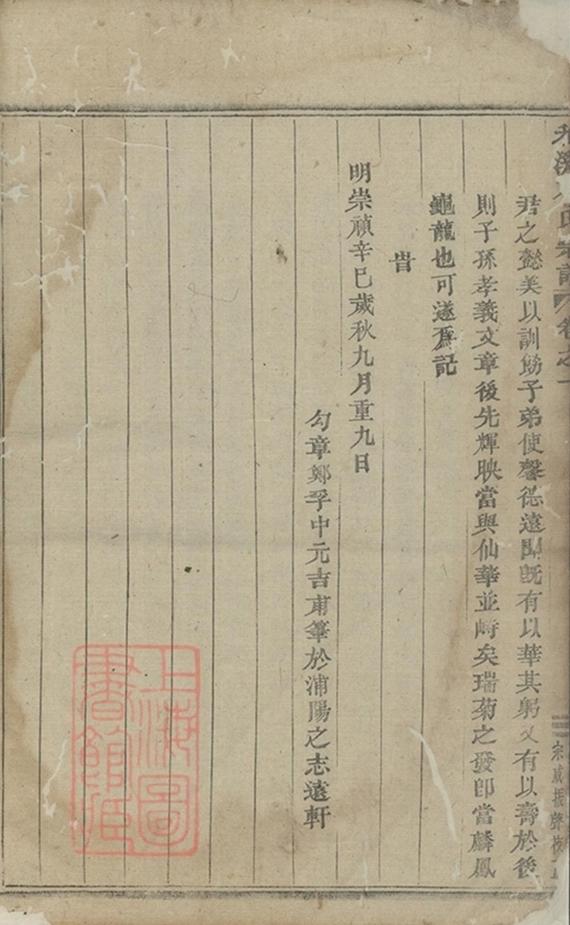 君之懿美以訓飭子弟使馨德遠聞既有以華其躬又有以壽於後
則子孫孝義文章後先輝映當與仙華並峙矣瑞菊之發卽當麟鳳
龜龍也可遂爲記
旹
明崇禎辛巳歲秋九月重九日
勾章鄭孚中元吉甫筆於浦陽之志遠軒
上海圖
書館藏